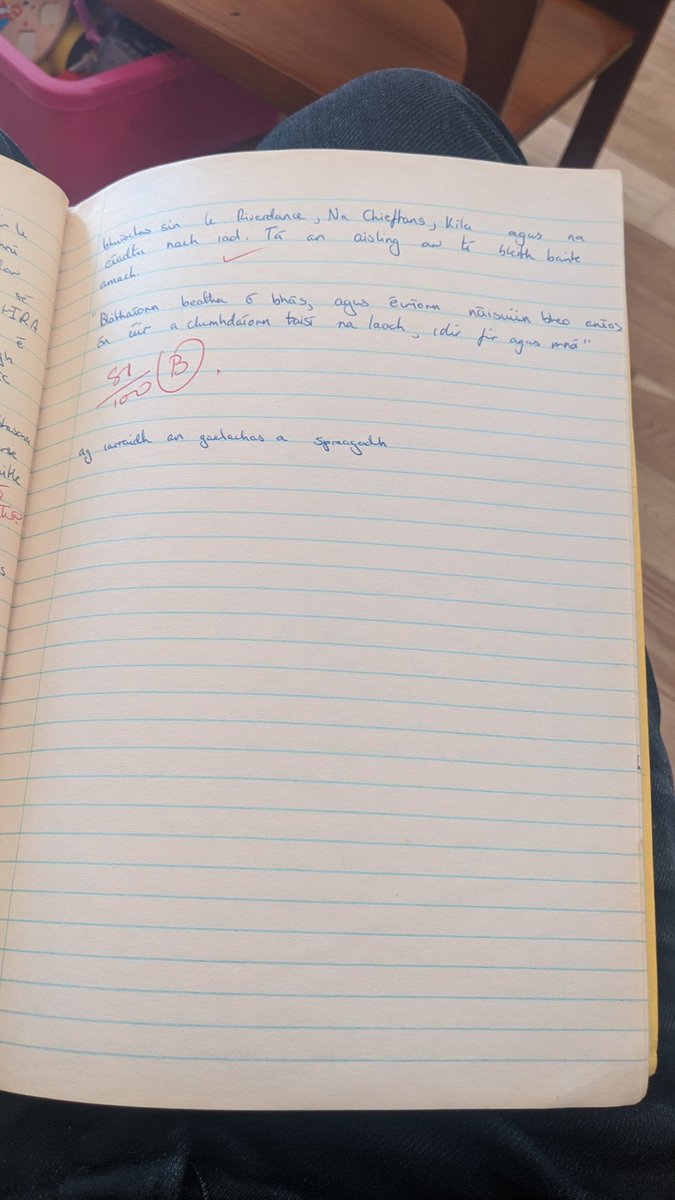 bhuíochas sin le Riverdance, Na Chieftans, Kíla agus na
ciadta nach iad. Tá an aisling ar tí bheith bainte
amach.
"Bláthaíonn beatha ó bhás, agus éiríonn náisiúin bheo aníos
ón úir a chumhdaíonn taisí na laoch, idir fir agus mná"
81
100
B
ag iarraidh an gaelachas a spreagadh
le
sé
IRA
é